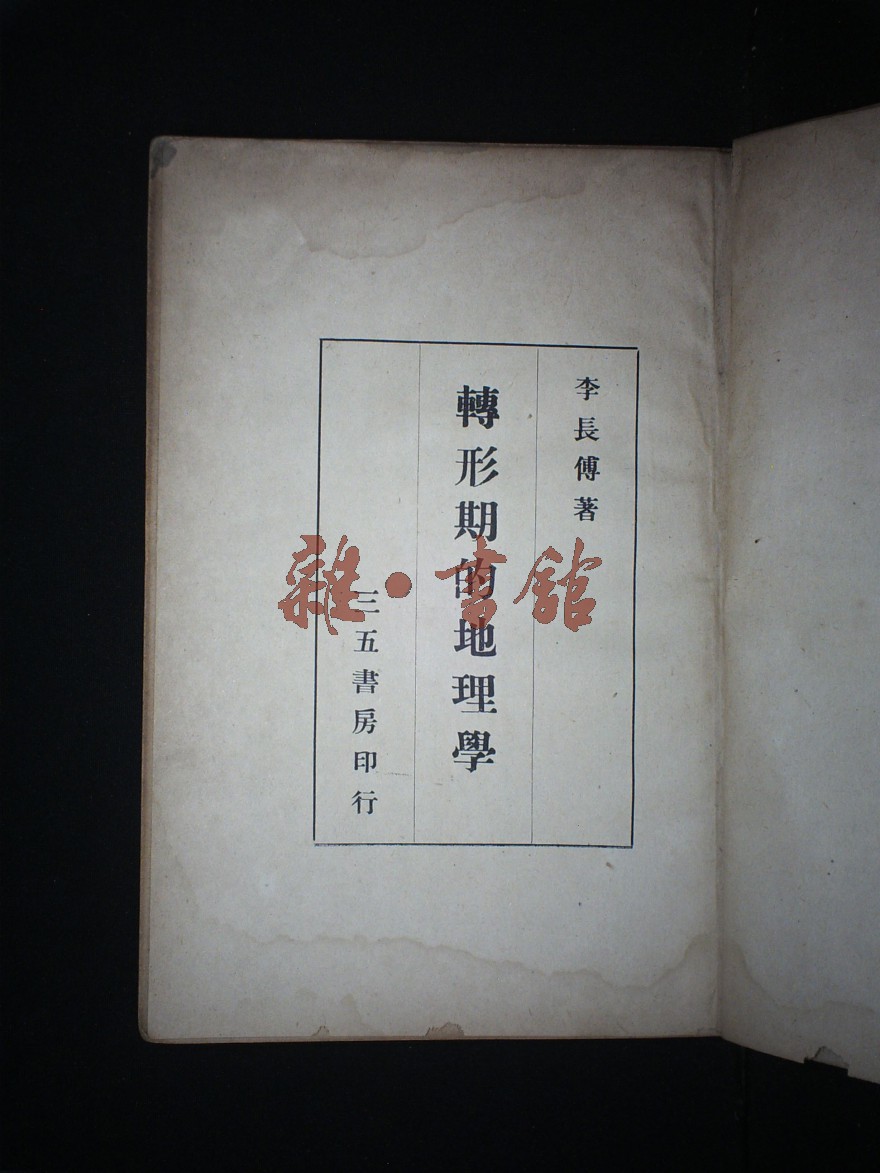 李長傅著
轉形期的地理學
三五書房印行
雜·書館